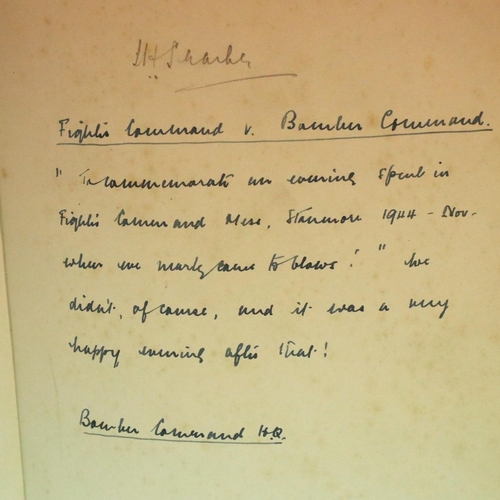 Fighter Command v. Bomber Command.
"To commemorate an evening spent in
Fighter Command Mess, Stanmore 1944 - Nov-
when we nearly came to blows!" We
didn't, of course, and it was a very
happy evening after that!
Bomber Command H.Q.